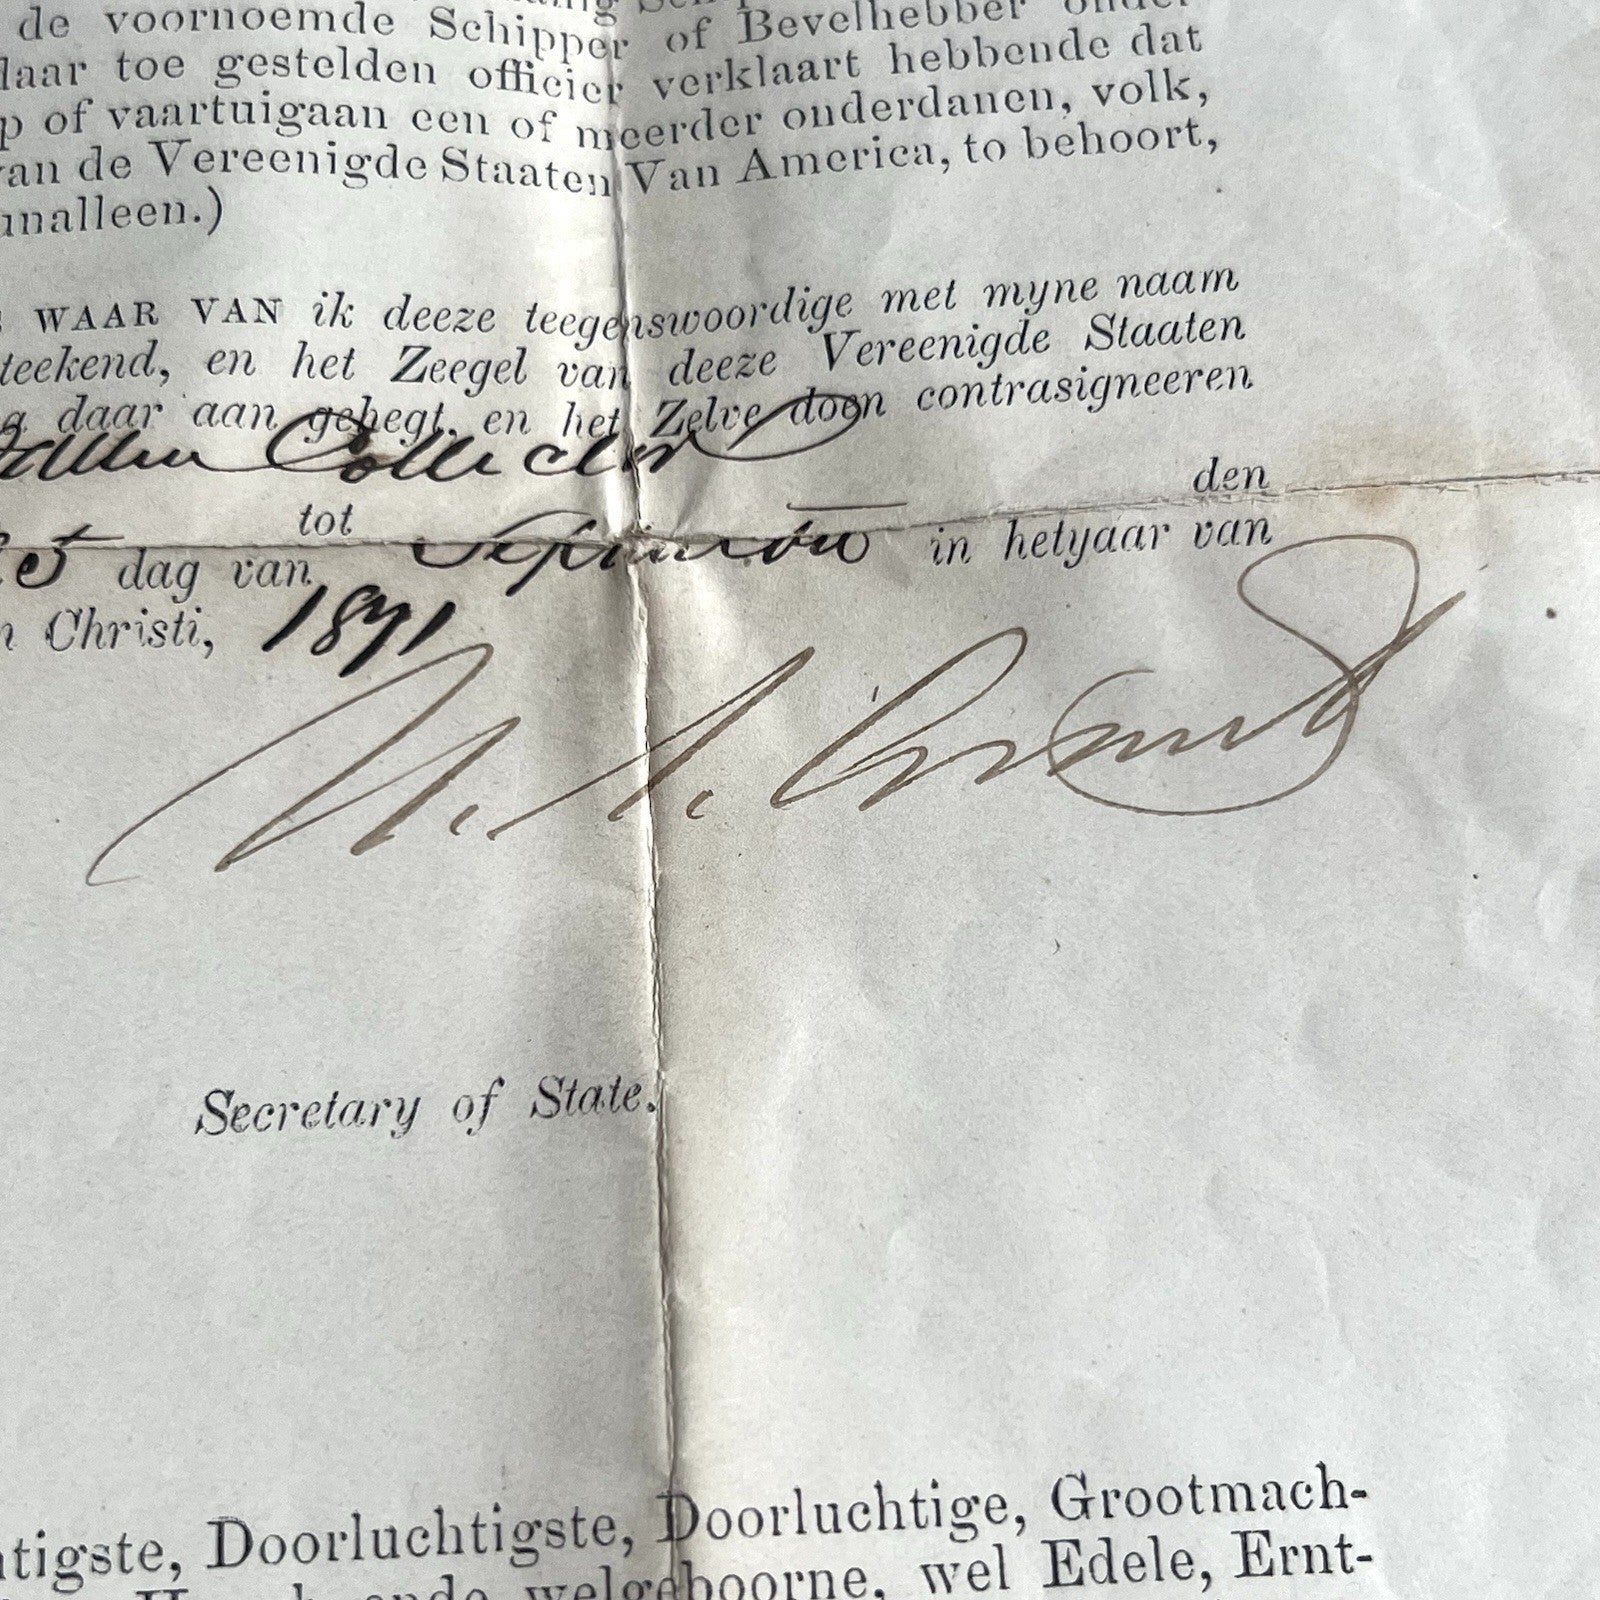 de voornoemde Schipper of Bevelhebber
laar toe gestelden officier verklaart hebbende dat
p of vaartuigaan een of meerder onderdanen, volk,
van de Vereenigde Staaten Van America, to behoort,
nnalleen.)
WAAR VAN ik deeze teegenswoordige met myne naam
teekend, en het Zeegel van deeze Vereenigde Staaten
daar aan gehegt, en het Zelve doen contrasigneeren
Collector
den
tot
dag van September in hetyaar van
Christi, 1871
U. S. Grant
Secretary of State.
tigste, Doorluchtigste, Doorluchtige, Grootmach-
welgeboorne, wel Edele, Ernt-